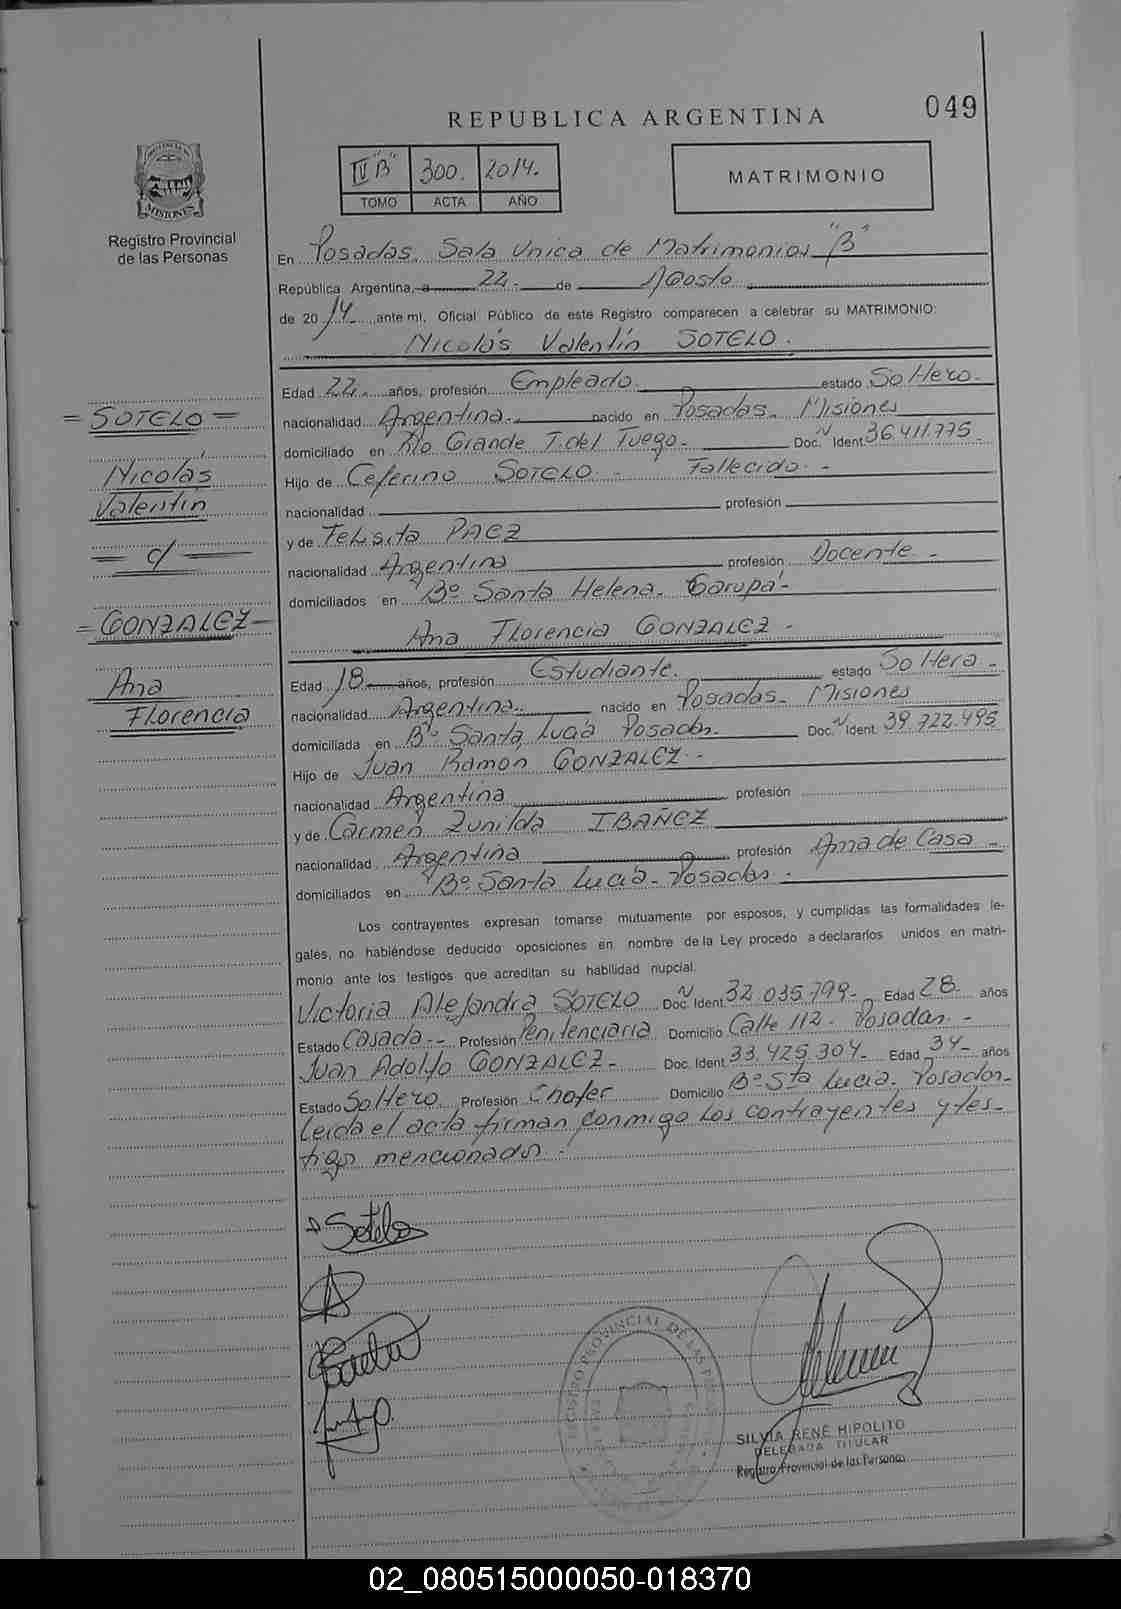 REPUBLICA ARGENTINA
049
PROVINCIA DE
MISIONES
Registro Provincial
de las Personas
IV "B" 300. 2014.
TOMO ACTA AÑO
MATRIMONIO
En Posadas. Sala Unica de Matrimonios "B"
República Argentina, a 22. de Agosto
de 2014. ante mí, Oficial Público de este Registro comparecen a celebrar su MATRIMONIO:
Nicolás Valentín SOTELO.
Edad 22. años, profesión Empleado. estado Soltero.
nacionalidad Argentina. nacido en Posadas. Misiones
domiciliado en Río Grande T. del Fuego. Doc. N Ident. 36.411.775.
Hijo de Ceferino SOTELO - Fallecido. -
nacionalidad profesión
y de Felisita PAEZ
nacionalidad Argentina profesión Docente -
domiciliados en Bº Santa Helena. Garupá -
Ana Florencia GONZALEZ -
Edad 18 años, profesión Estudiante. estado Soltera -
nacionalidad Argentina. nacido en Posadas - Misiones
domiciliada en Bº Santa Lucía Posadas. Doc. N Ident. 39.722.495
Hijo de Juan Ramon GONZALEZ -
nacionalidad Argentina profesión
y de Carmen Zunilda IBAÑEZ
nacionalidad Argentina profesión Ama de Casa -
domiciliados en Bº Santa Lucía - Posadas.
= SOTELO =
Nicolás
Valentín
= c/ =
= GONZALEZ -
Ana
Florencia
Los contrayentes expresan tomarse mutuamente por esposos, y cumplidas las formalidades le-
gales, no habiéndose deducido oposiciones en nombre de la Ley procedo a declararlos unidos en matri-
monio ante los testigos que acreditan su habilidad nupcial.
Victoria Alejandra SOTELO Doc. N Ident. 32.035.799 - Edad 28 años
Estado Casada - Profesión Penitenciaria Domicilio Calle 112 - Posadas. -
Juan Adolfo GONZALEZ - Doc. Ident. 33.425.304 - Edad 34 - años
Estado Soltero. Profesión Chofer Domicilio Bº Sta Lucia. Posadas -
Leida el acta firman conmigo los contrayentes y tes-
tigos mencionados. -
Sotelo
REGISTRO PROVINCIAL DE LAS
SILVIA RENÉ HIPOLITO
DELEGADA TITULAR
Registro Provincial de las Personas
02_080515000050-018370